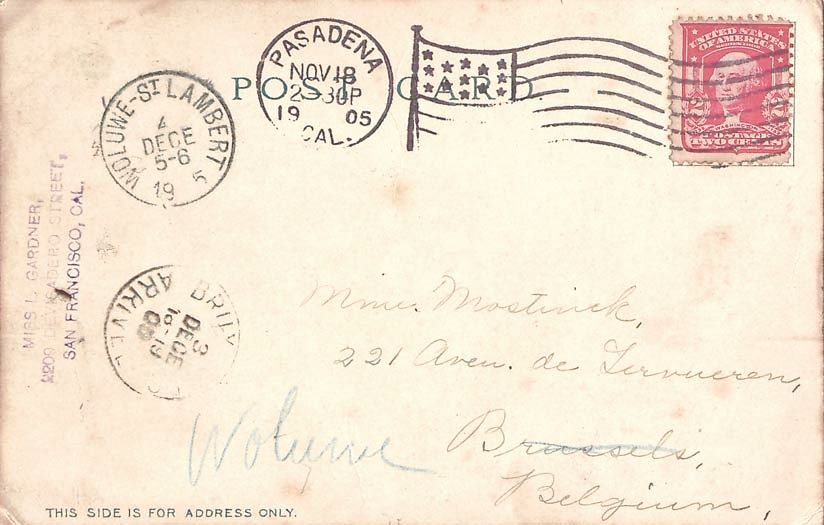 POST CARD
PASADENA
NOV 18
2-30P
19 05
CAL.
UNITED STATES
OF AMERICA
WASHINGTON
POSTAGE
TWO CENTS
WOLUWE-ST LAMBERT
4
DECE
5-6
19 5
MISS L. GARDNER,
STREET,
SAN FRANCISCO, CAL.
3
DECE
Mme. Mostinck,
221 Aven. de Tervueren,
Brussels,
Woluwe
Belgium,
THIS SIDE IS FOR ADDRESS ONLY.